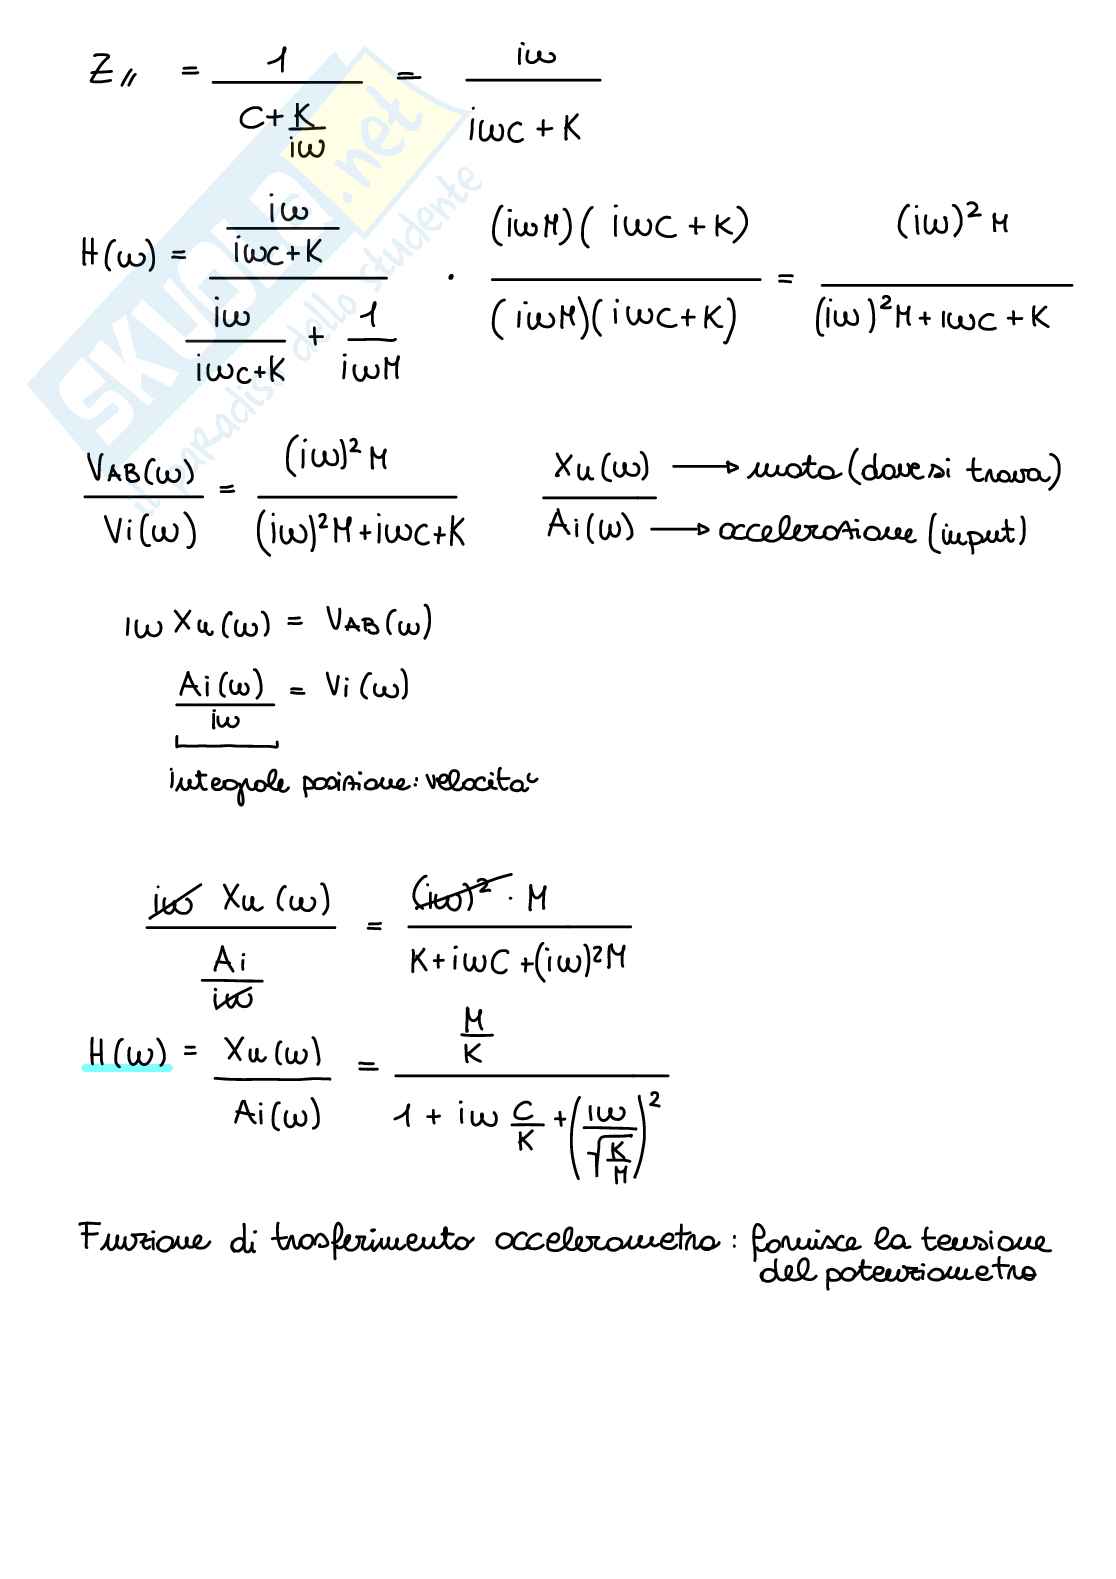 Z// = 1 / (C + K/iω) = iω / (iωC + K)
H(ω) = (iω / (iωC+K)) / (iω / (iωC+K) + 1 / iωM) · (iωM)(iωC + K) / (iωM)(iωC+K) = (iω)² M / ((iω)²M + iωC + K)
VAB(ω) / Vi(ω) = (iω)² M / ((iω)²M+iωC+K)
Xu(ω) → moto (dove si trova)
Ai(ω) → accelerazione (input)
iω Xu(ω) = VAB(ω)
Ai(ω) / iω = Vi(ω)
integrale posizione: velocità
iω Xu(ω) / (Ai / iω) = (iω)² · M / (K + iωC + (iω)²M)
H(ω) = Xu(ω) / Ai(ω) = (M/K) / (1 + iω C/K + (iω / √(K/M))²)
Funzione di trasferimento accelerometro: fornisce la tensione
del potenziometro
SKUOLA.net
il paradiso dello studente